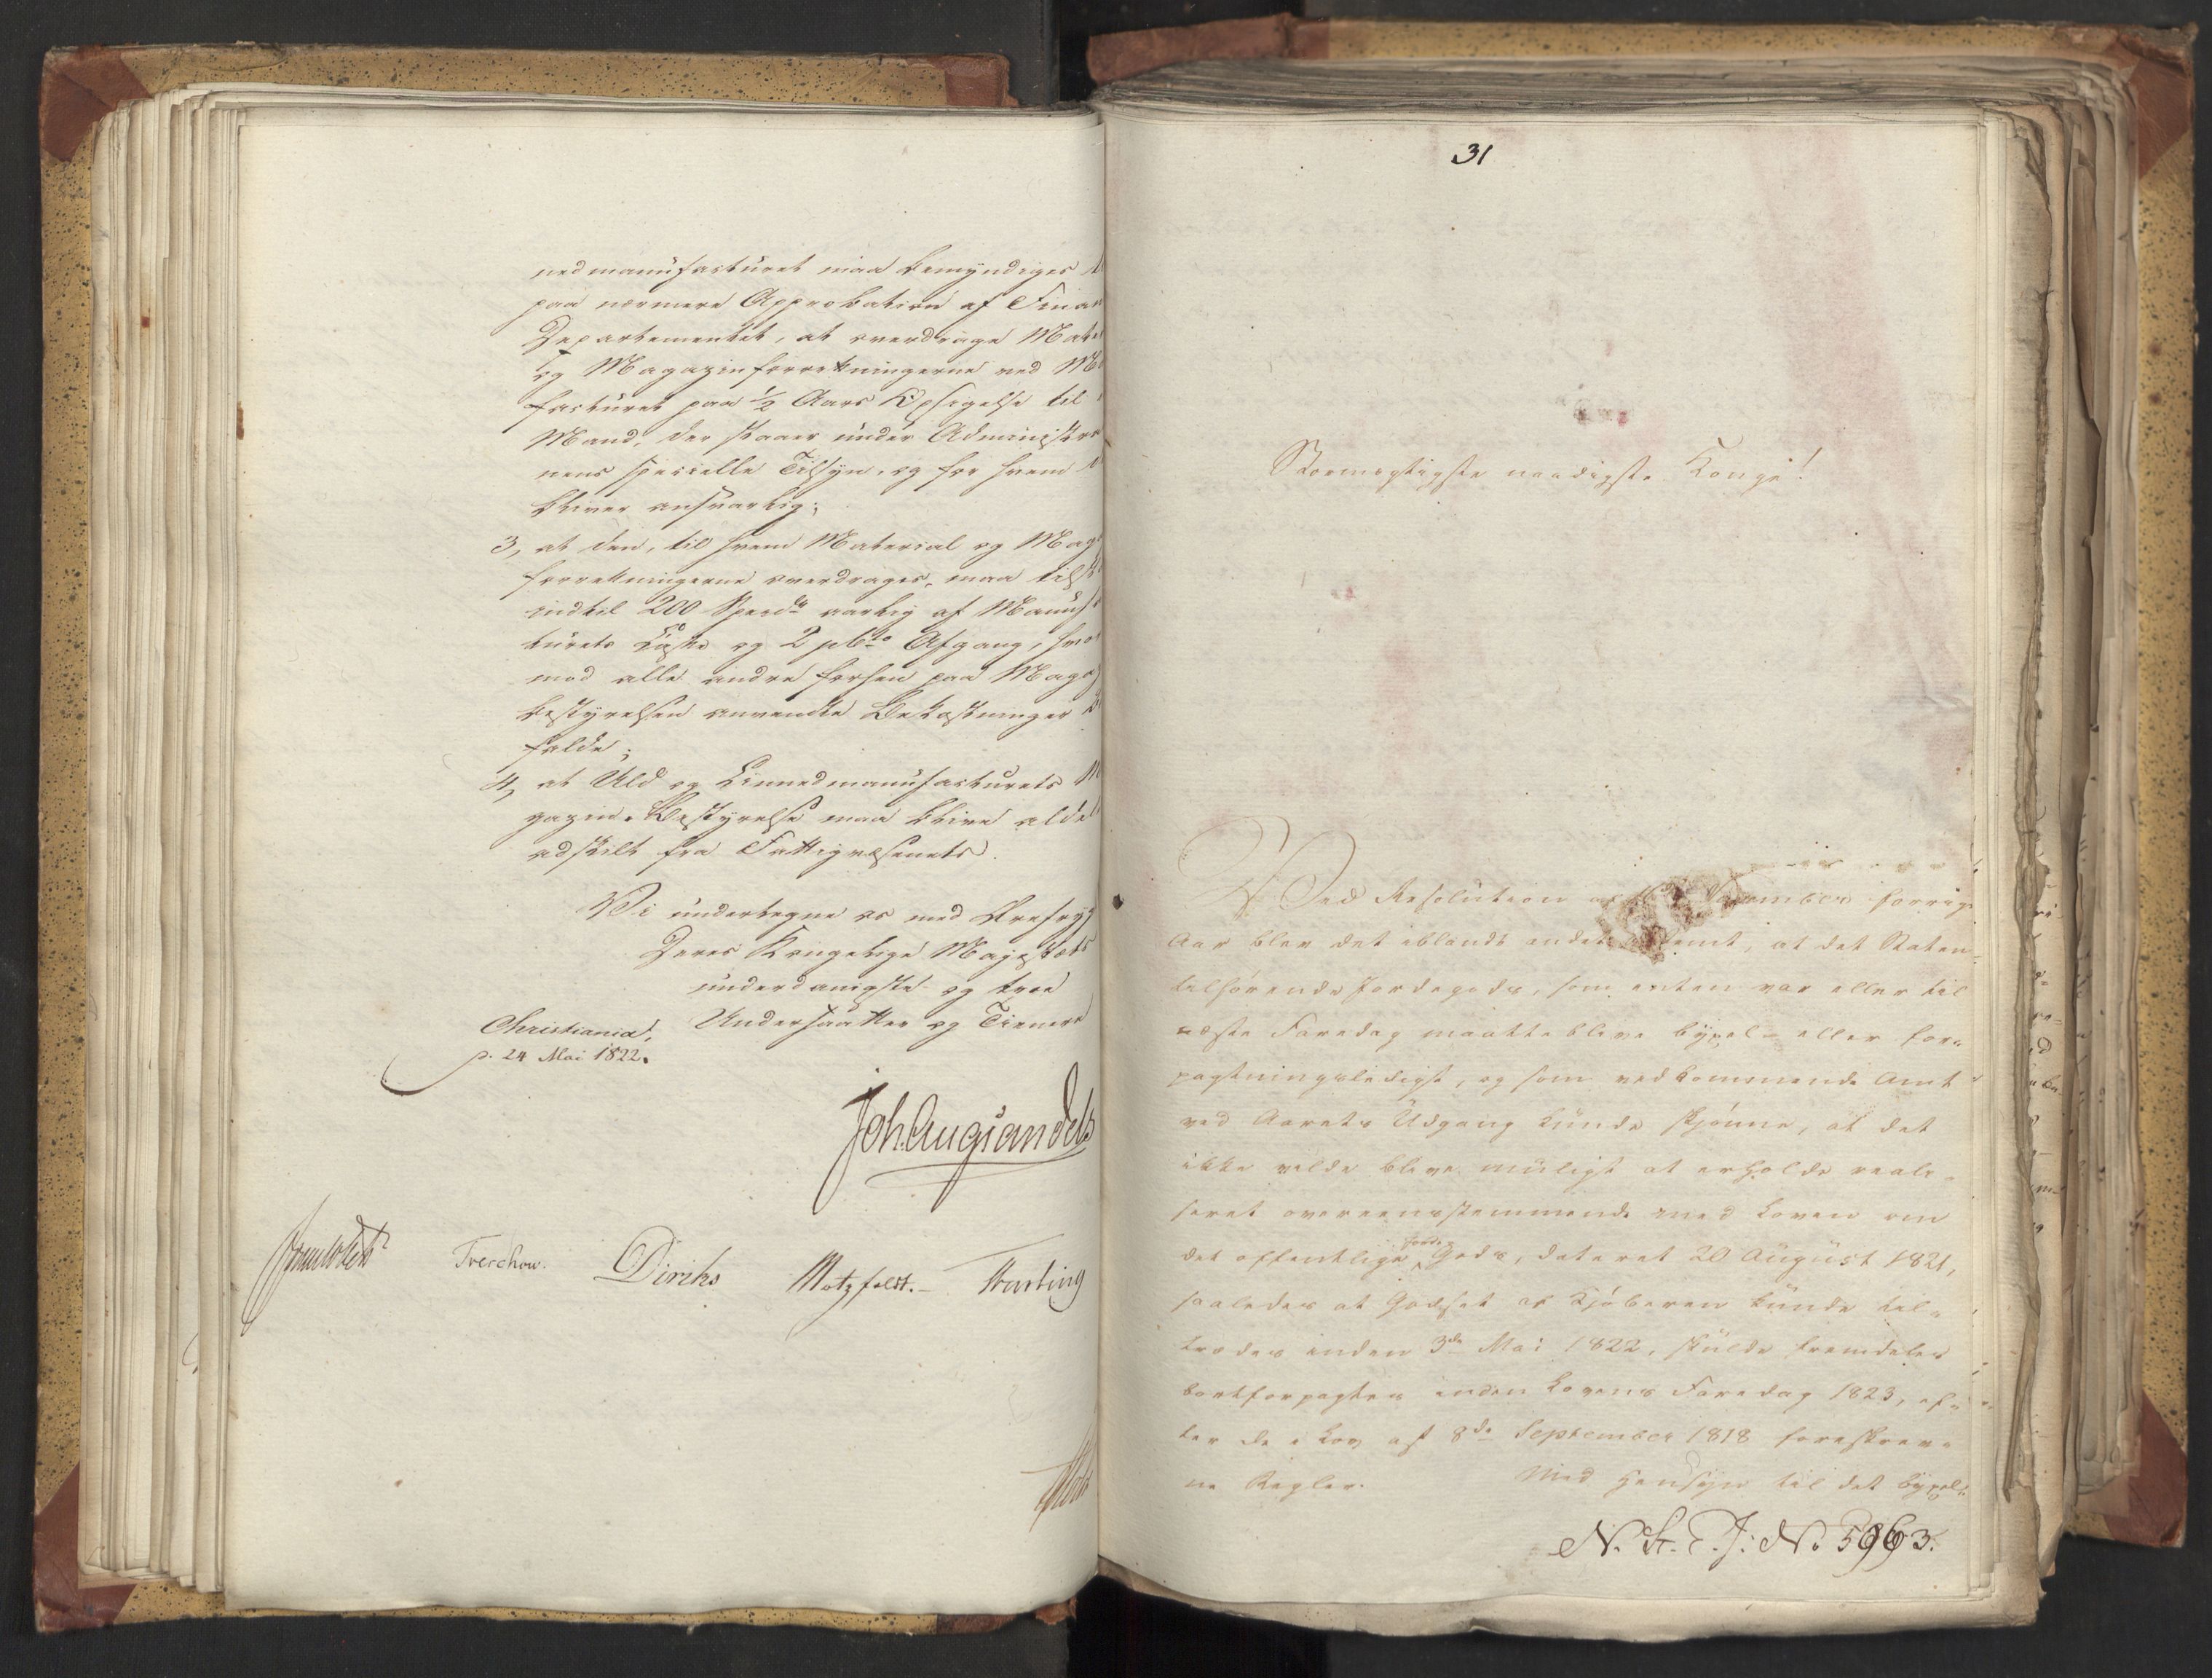 nedmanufacturet maa bemyndiges
paa nærmere Approbation af Finan
Departementet, at overdrage Mate
og Magazinforretningerne ved M
facturet paa ½ Aars Opsigelse til
Mand, der staaer under Administra
nens specielle Tilsyn, og for hvem
bliver ansvarlig;
3, at den, til hvem Material og Mag
forretningerne overdrages, maa tilst
indtil 200 Specd aarlig af Manufa
turets Casse og 2 pCto Afgang, hvor
mod alle andre forhen paa Magaz
bestyrelsen anvendte Bekostninger
falde;
4, at Uld og Linnedmanufacturets M
gazin-Bestyrelse maa blive aldel
adskilt fra Fattigvæsenets.
Vi undertegne os med Ærefryg
Deres Kongelige Majestæts
underdanigste og troe
Undersaatter og Tienere
Christiania,
p. 24 Mai 1822.
Joh. Aug: Sandels
Treschow. Diriks Motzfeldt. -
31
Stormægtigste naadigste Konge!
Ved Resolution November forrige
Aar blev det iblandt andet bestemt, at det Staten
tilhørende Jordegods, som enten var eller til
næste Faredag maatte blive byxel- eller for-
pagtningsledigt, og som vedkommende Amt
ved Aarets Udgang kunde skjønne, at det
ikke vilde blive muligt at erholde reali-
seret overeensstemmende med Loven om
det offentlige Jorde Gods, dateret 20 August 1821,
saaledes at Godset af Kjøberen kunde til-
trædes inden 3de Mai 1822, skulde fremdeles
bortforpagtes inden Lovens Faredag 1823, ef-
ter de i Lov af 8de September 1818 foreskrev-
ne Regler. Med Hensyn til det byxel-
N. St. S. J: No 5963.